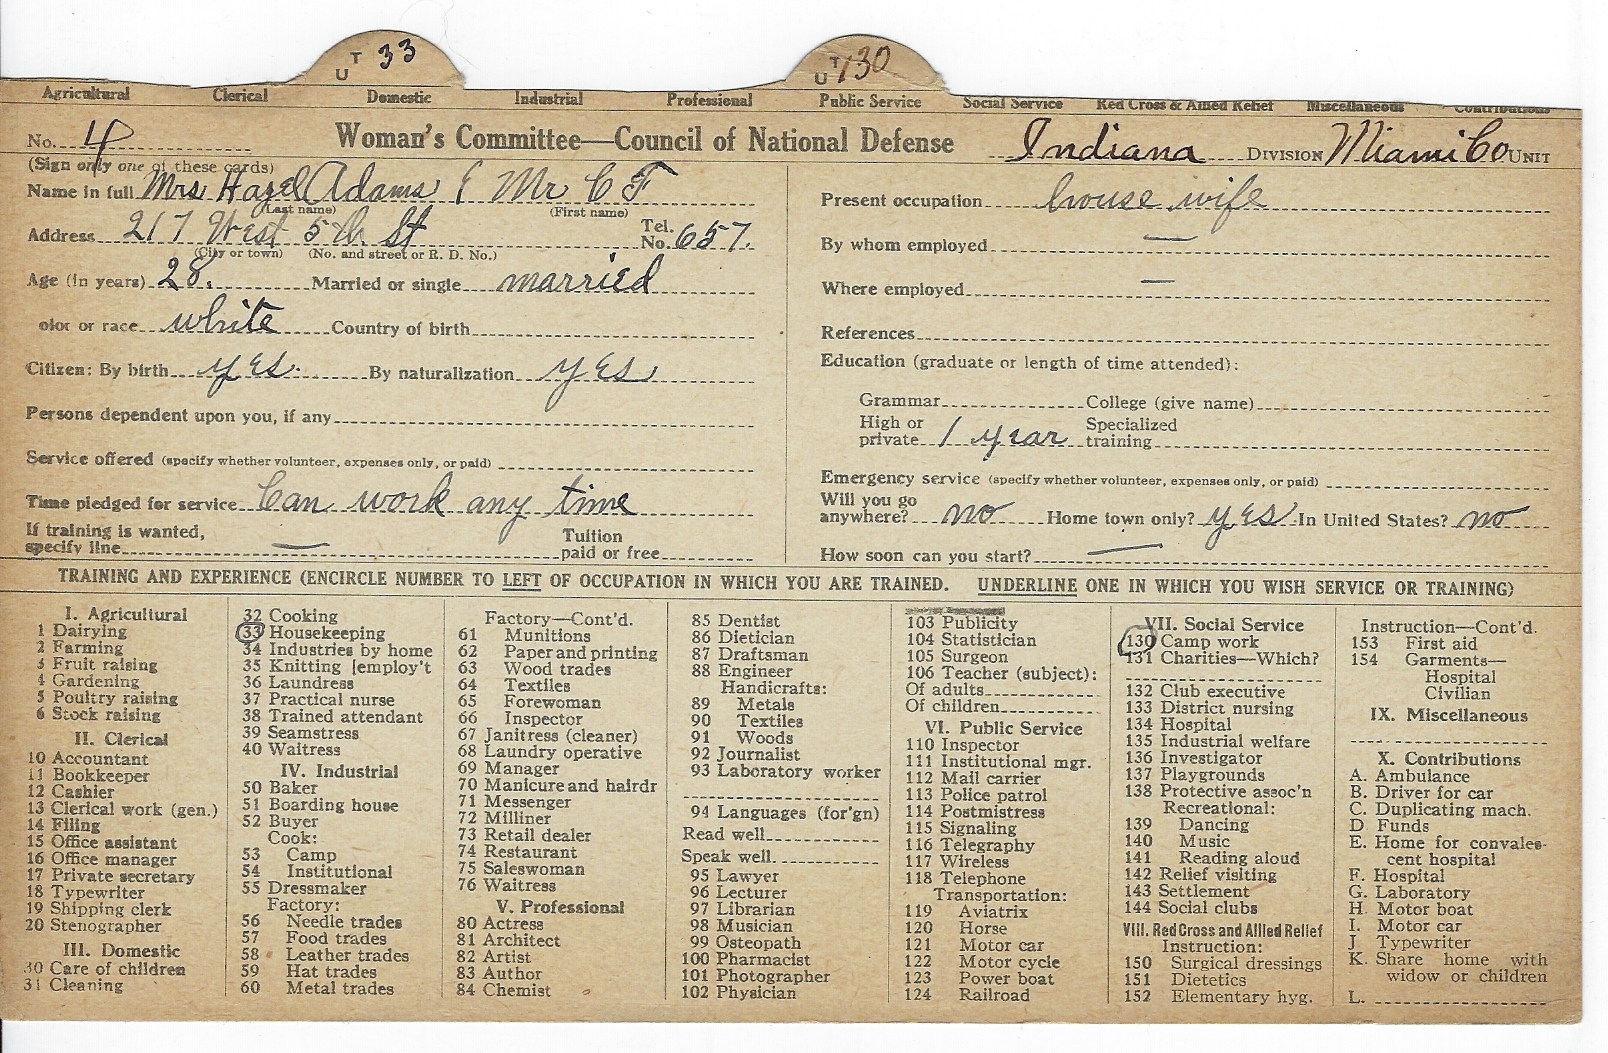 T 33
U
T 130
U
Agricultural Clerical Domestic Industrial Professional Public Service Social Service Red Cross & Allied Relief Miscellaneous Contributions
No. 4 Woman's Committee—Council of National Defense Indiana DIVISION Miami Co UNIT
(Sign only one of these cards)
Name in full Mrs Hazel Adams Mr C F
(Last name) (First name)
Address 217 West 5th St Tel. No. 657.
(City or town) (No. and street or R. D. No.)
Age (in years) 28. Married or single married
olor or race white Country of birth
Citizen: By birth yes. By naturalization yes
Persons dependent upon you, if any
Service offered (specify whether volunteer, expenses only, or paid)
Time pledged for service Can work any time
If training is wanted, Tuition
specify line — paid or free
Present occupation house wife
By whom employed —
Where employed —
References
Education (graduate or length of time attended):
Grammar College (give name)
High or Specialized
private 1 year training
Emergency service (specify whether volunteer, expenses only, or paid)
Will you go
anywhere? no Home town only? yes In United States? no
How soon can you start? —
TRAINING AND EXPERIENCE (ENCIRCLE NUMBER TO LEFT OF OCCUPATION IN WHICH YOU ARE TRAINED. UNDERLINE ONE IN WHICH YOU WISH SERVICE OR TRAINING)
I. Agricultural
1 Dairying
2 Farming
3 Fruit raising
4 Gardening
5 Poultry raising
6 Stock raising
II. Clerical
10 Accountant
11 Bookkeeper
12 Cashier
13 Clerical work (gen.)
14 Filing
15 Office assistant
16 Office manager
17 Private secretary
18 Typewriter
19 Shipping clerk
20 Stenographer
III. Domestic
30 Care of children
31 Cleaning
32 Cooking
33 Housekeeping
34 Industries by home
35 Knitting [employ't
36 Laundress
37 Practical nurse
38 Trained attendant
39 Seamstress
40 Waitress
IV. Industrial
50 Baker
51 Boarding house
52 Buyer
Cook:
53 Camp
54 Institutional
55 Dressmaker
Factory:
56 Needle trades
57 Food trades
58 Leather trades
59 Hat trades
60 Metal trades
Factory—Cont'd.
61 Munitions
62 Paper and printing
63 Wood trades
64 Textiles
65 Forewoman
66 Inspector
67 Janitress (cleaner)
68 Laundry operative
69 Manager
70 Manicure and hairdr
71 Messenger
72 Milliner
73 Retail dealer
74 Restaurant
75 Saleswoman
76 Waitress
V. Professional
80 Actress
81 Architect
82 Artist
83 Author
84 Chemist
85 Dentist
86 Dietician
87 Draftsman
88 Engineer
Handicrafts:
89 Metals
90 Textiles
91 Woods
92 Journalist
93 Laboratory worker
94 Languages (for'gn)
Read well
Speak well
95 Lawyer
96 Lecturer
97 Librarian
98 Musician
99 Osteopath
100 Pharmacist
101 Photographer
102 Physician
103 Publicity
104 Statistician
105 Surgeon
106 Teacher (subject):
Of adults
Of children
VI. Public Service
110 Inspector
111 Institutional mgr.
112 Mail carrier
113 Police patrol
114 Postmistress
115 Signaling
116 Telegraphy
117 Wireless
118 Telephone
Transportation:
119 Aviatrix
120 Horse
121 Motor car
122 Motor cycle
123 Power boat
124 Railroad
VII. Social Service
130 Camp work
131 Charities—Which?
132 Club executive
133 District nursing
134 Hospital
135 Industrial welfare
136 Investigator
137 Playgrounds
138 Protective assoc'n
Recreational:
139 Dancing
140 Music
141 Reading aloud
142 Relief visiting
143 Settlement
144 Social clubs
VIII. Red Cross and Allied Relief
Instruction:
150 Surgical dressings
151 Dietetics
152 Elementary hyg.
Instruction—Cont'd.
153 First aid
154 Garments—
Hospital
Civilian
IX. Miscellaneous
X. Contributions
A. Ambulance
B. Driver for car
C. Duplicating mach.
D Funds
E. Home for convales-
cent hospital
F. Hospital
G. Laboratory
H. Motor boat
I. Motor car
J. Typewriter
K. Share home with
widow or children
L.